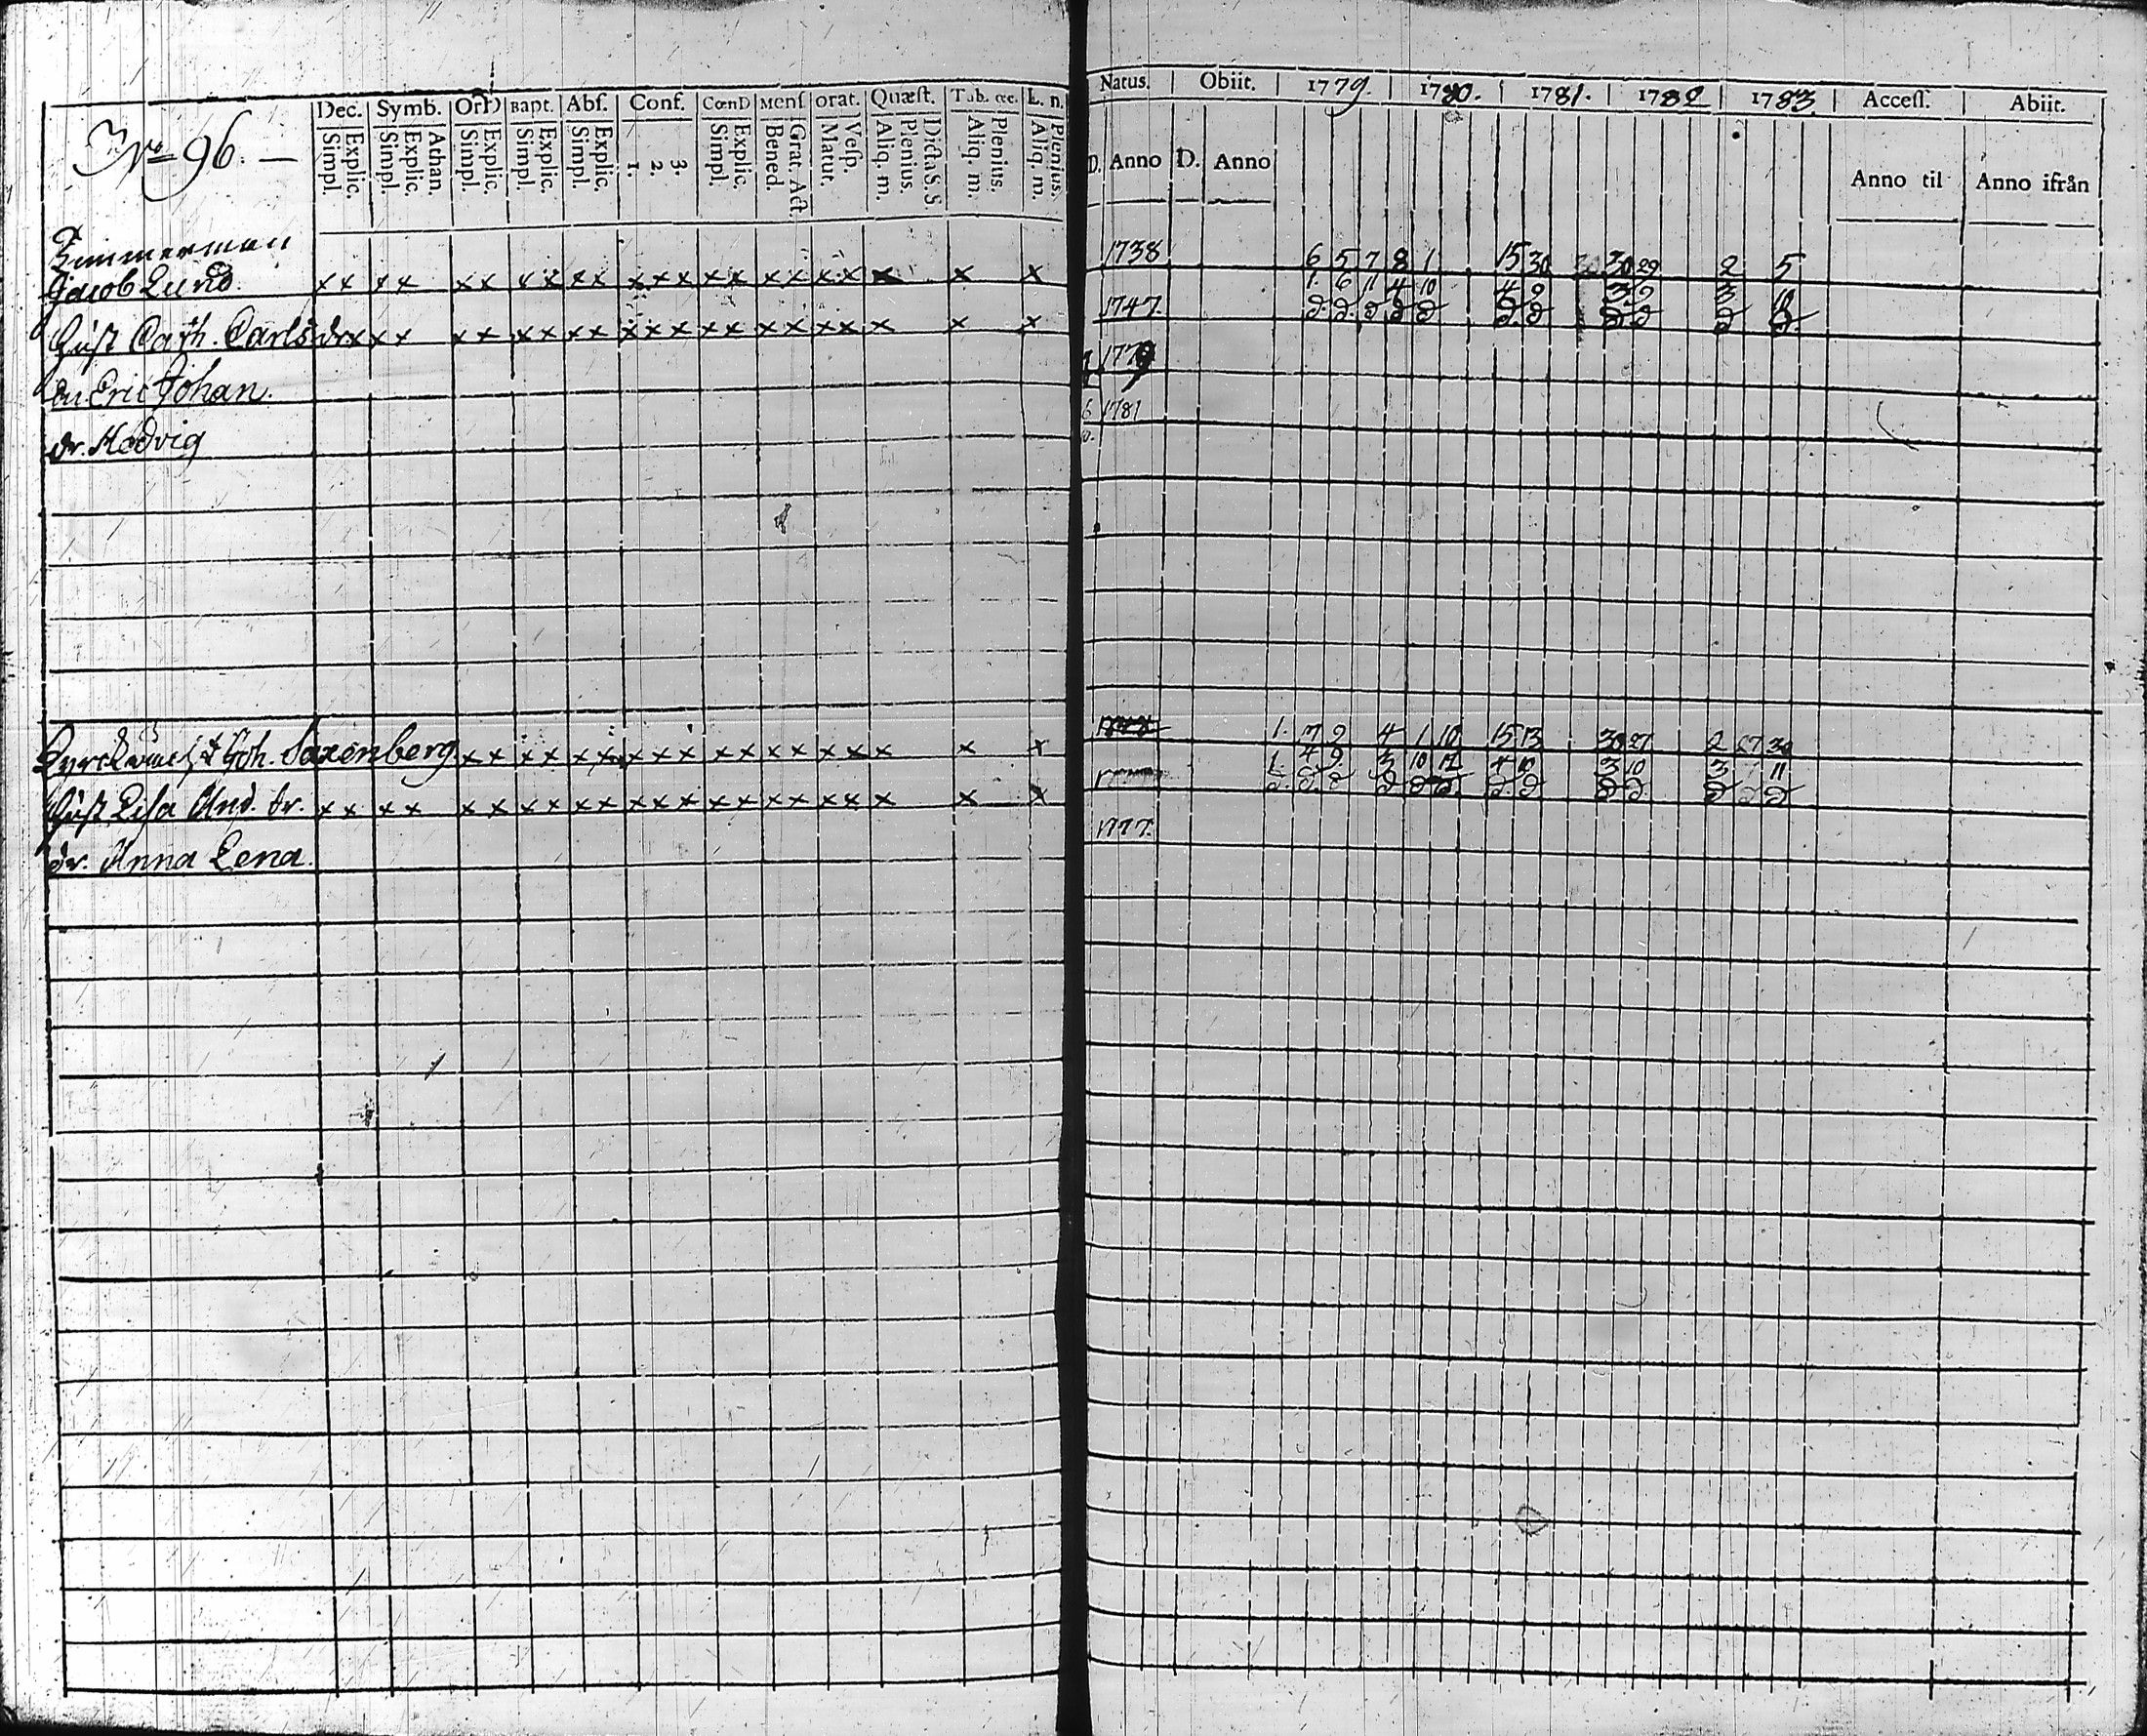 No 96. —
Dec. Symb. OrD Bapt. Abſ. Conf. CœnD Menſ. Orat. Quæſt. Tab. œc. L. n.
Simpl. Explic. Simpl. Explic. Athan. Simpl. Explic. Simpl. Explic. Simpl. Explic. 1. 2. 3. Simpl. Explic. Bened. Grat. Act. Matut. Veſp. Aliq. m. Plenius. Dicta S. S. Aliq. m. Plenius. Aliq. m. Plenius.
Natus. Obiit. 1779. 1780. 1781. 1782 1783 Acceſſ. Abiit.
D. Anno D. Anno Anno til Anno ifrån
Zimmerman
Jacob Lund x x x x x x x x x x x x x x x x x x x x x x 1738 6 5 7 8 1 15 30 30 29 2 5
1. 6 11 4 10 4 9 3 9 3
Hust Cath. Carls dr x x x x x x x x x x x x x x x x x x x x x 1747.
Eric Johan. 1779
dr. Hedvig 6 1781
Joh. Saxenberg x x x x x x x x x x x x x x x x x x 1. 7 9 4 1 10 15 13 30 27 2 27 30
1. 4 9 3 10 12 4 10 3 10 3 11
Hust Lisa And. dr. x x x x x x x x x x x x x x x x x x x x x x
dr. Anna Lena. 1777.